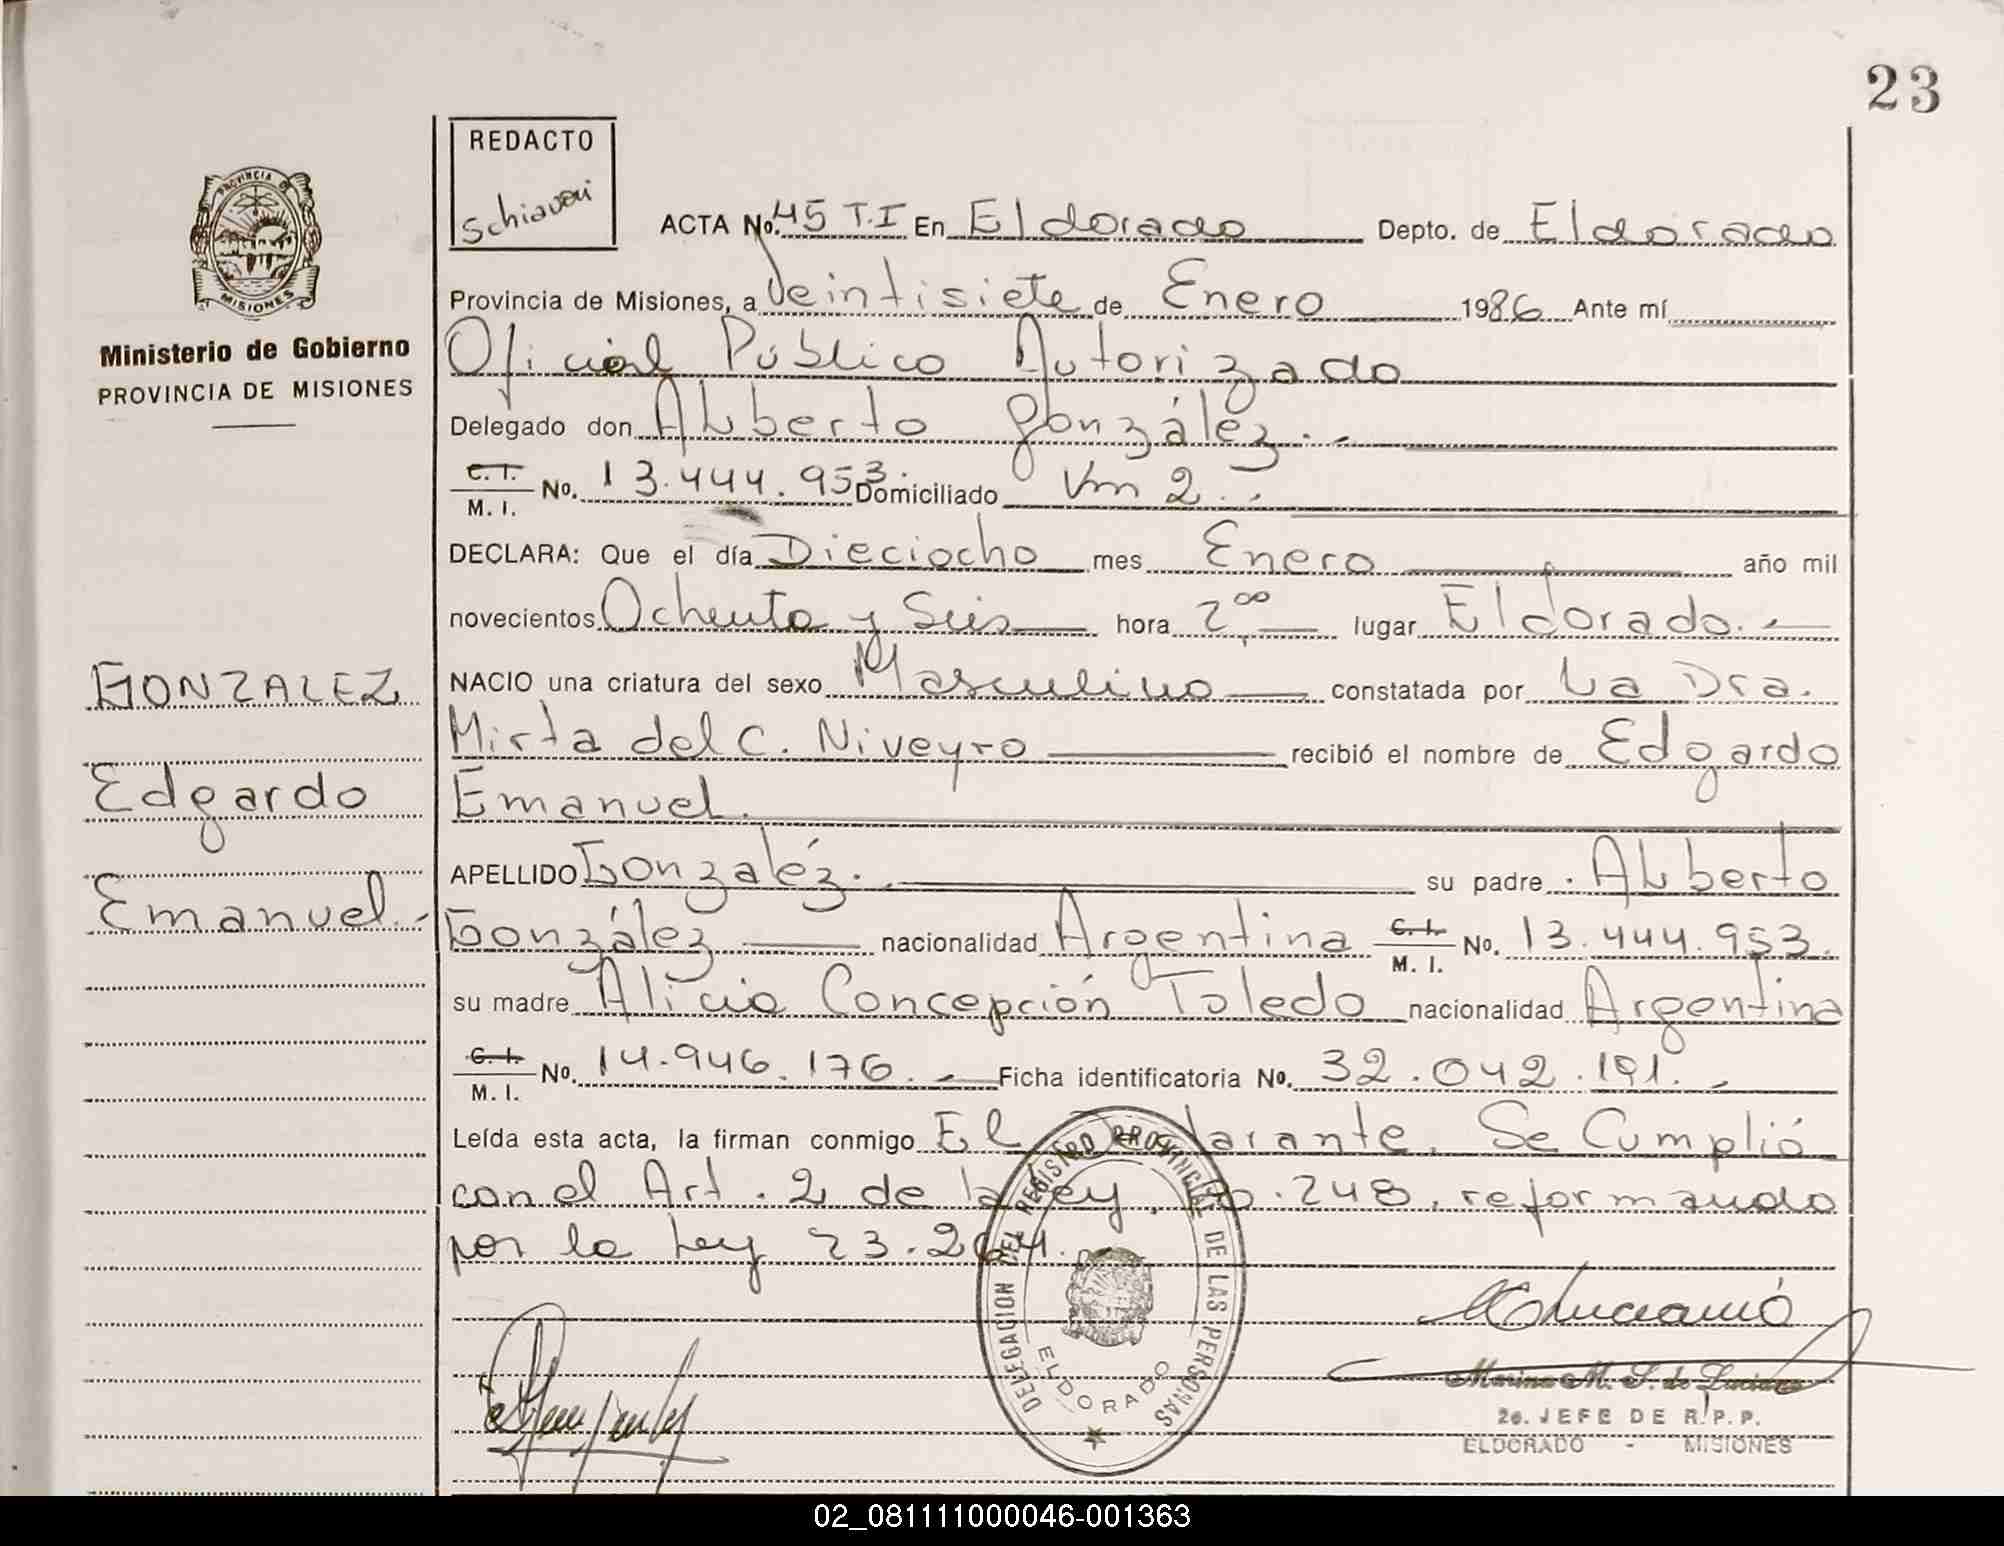 23
REDACTO
Schiavoni
PROVINCIA DE
MISIONES
Ministerio de Gobierno
PROVINCIA DE MISIONES
ACTA No. 45 T.I En Eldorado Depto. de Eldorado
Provincia de Misiones, a Veintisiete de Enero 1986 Ante mí
Oficial Público Autorizado
Delegado don Alberto González.-
C.I. M. I. No. 13.444.953. Domiciliado Km 2.-
DECLARA: Que el día Dieciocho mes Enero año mil
novecientos Ochenta y Seis hora 2,00 lugar Eldorado.-
GONZALEZ
NACIO una criatura del sexo Masculino constatada por La Dra.
Mirta del C. Niveyro recibió el nombre de Edgardo
Edgardo
Emanuel.
APELLIDO Gonzaléz. su padre Alberto
Emanuel.-
González nacionalidad Argentina C.I. M. I. No. 13.444.953.
su madre Alicia Concepción Toledo nacionalidad Argentina
C.I. M. I. No. 14.946.176.- Ficha identificatoria No. 32.042.191.-
Leída esta acta, la firman conmigo El Declarante. Se Cumplió
con el Art. 2 de la Ley .248, reformando
por la Ley 23.264.
DELEGACION DEL REGISTRO PROVINCIAL DE LAS PERSONAS
ELDORADO
Marina M. S. de Luciano
2o. JEFE DE R.P.P.
ELDORADO - MISIONES
02_081111000046-001363